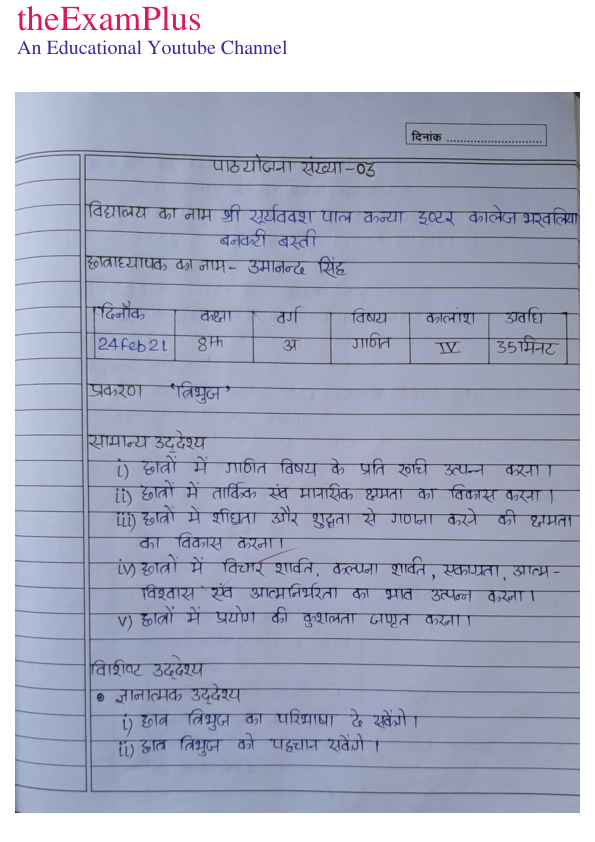 theExamPlus
An Educational Youtube Channel
दिनांक ............................
पाठयोजना संख्या-03
विद्यालय का नाम श्री सूर्यवक्श पाल कन्या इण्टर कालेज भरवलिया
बनकटी बस्ती
छात्राध्यापक का नाम- उमानन्द सिंह
दिनाँक कक्षा वर्ग विषय कालांश अवधि
24 feb 21 8th अ गणित IV 35 मिनट
प्रकरण 'त्रिभुज'
सामान्य उद्देश्य
i) छात्रों में गणित विषय के प्रति रूचि उत्पन्न करना।
ii) छात्रों में तार्किक एंव मानसिक क्षमता का विकास करना।
iii) छात्रों मे शीघ्रता और शुद्धता से गणना करने की क्षमता
का विकास करना।
iv) छात्रों में विचार शक्ति, कल्पना शक्ति, एकाग्रता, आत्म-
विश्वास एंव आत्मनिर्भरता का भाव उत्पन्न करना।
v) छात्रों में प्रयोग की कुशलता जागृत करना।
विशिष्ट उद्देश्य
• ज्ञानात्मक उद्देश्य
i) छात्र त्रिभुज का परिभाषा दे सकेंगे।
ii) छात्र त्रिभुज को पहचान सकेंगे।